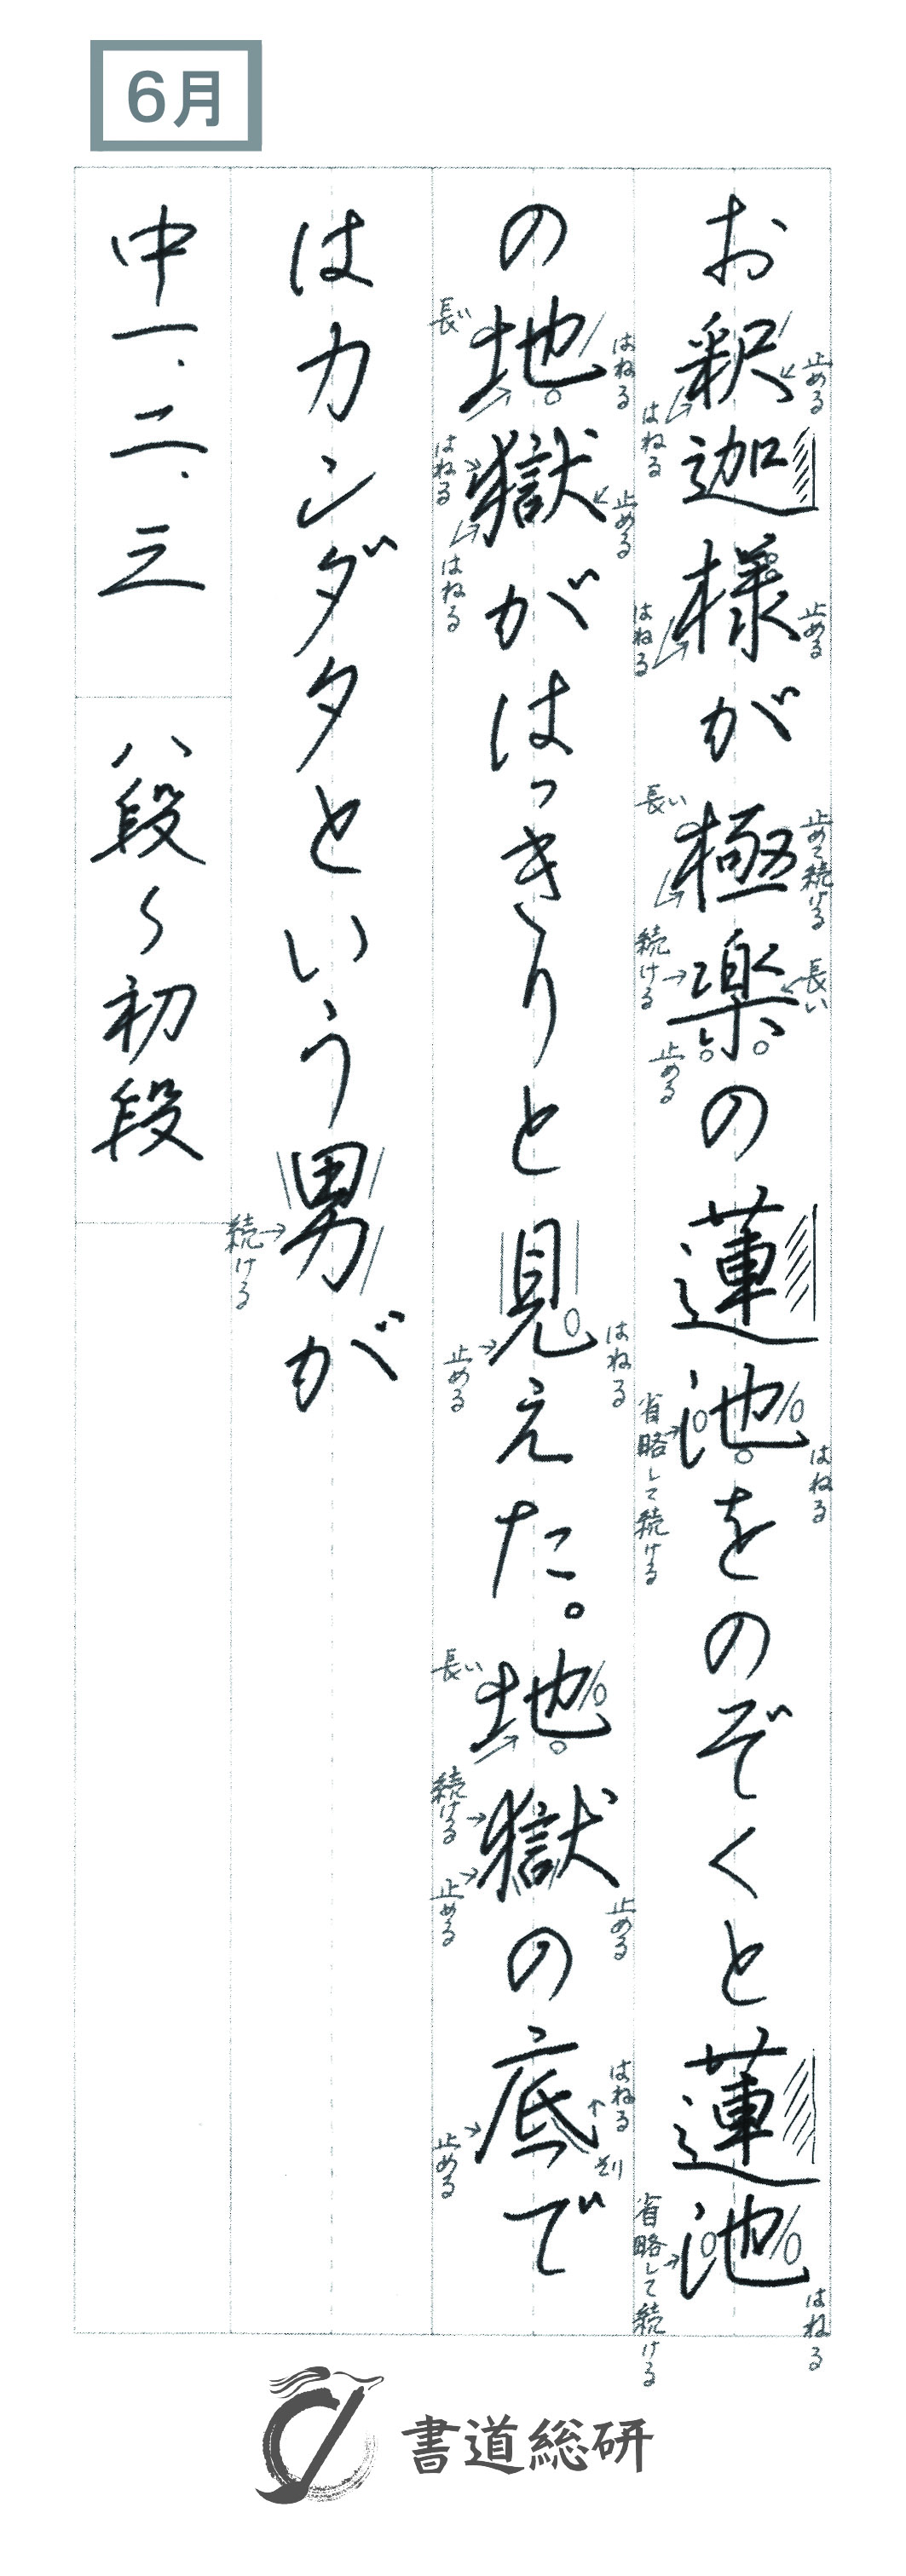 6月
お釈迦様が極楽の蓮池をのぞくと蓮池
止める
はねる
止める
はねる
長い
止めて続ける
続ける
長い
止める
省略して続ける
はねる
省略して続ける
はねる
の地獄がはっきりと見えた。地獄の底で
長い
はねる
はねる
止める
はねる
止める
はねる
長い
続ける
止める
止める
はねる
反り
止める
はカンダタという男が
続ける
中一、二、三
八段〜初段
書道総研